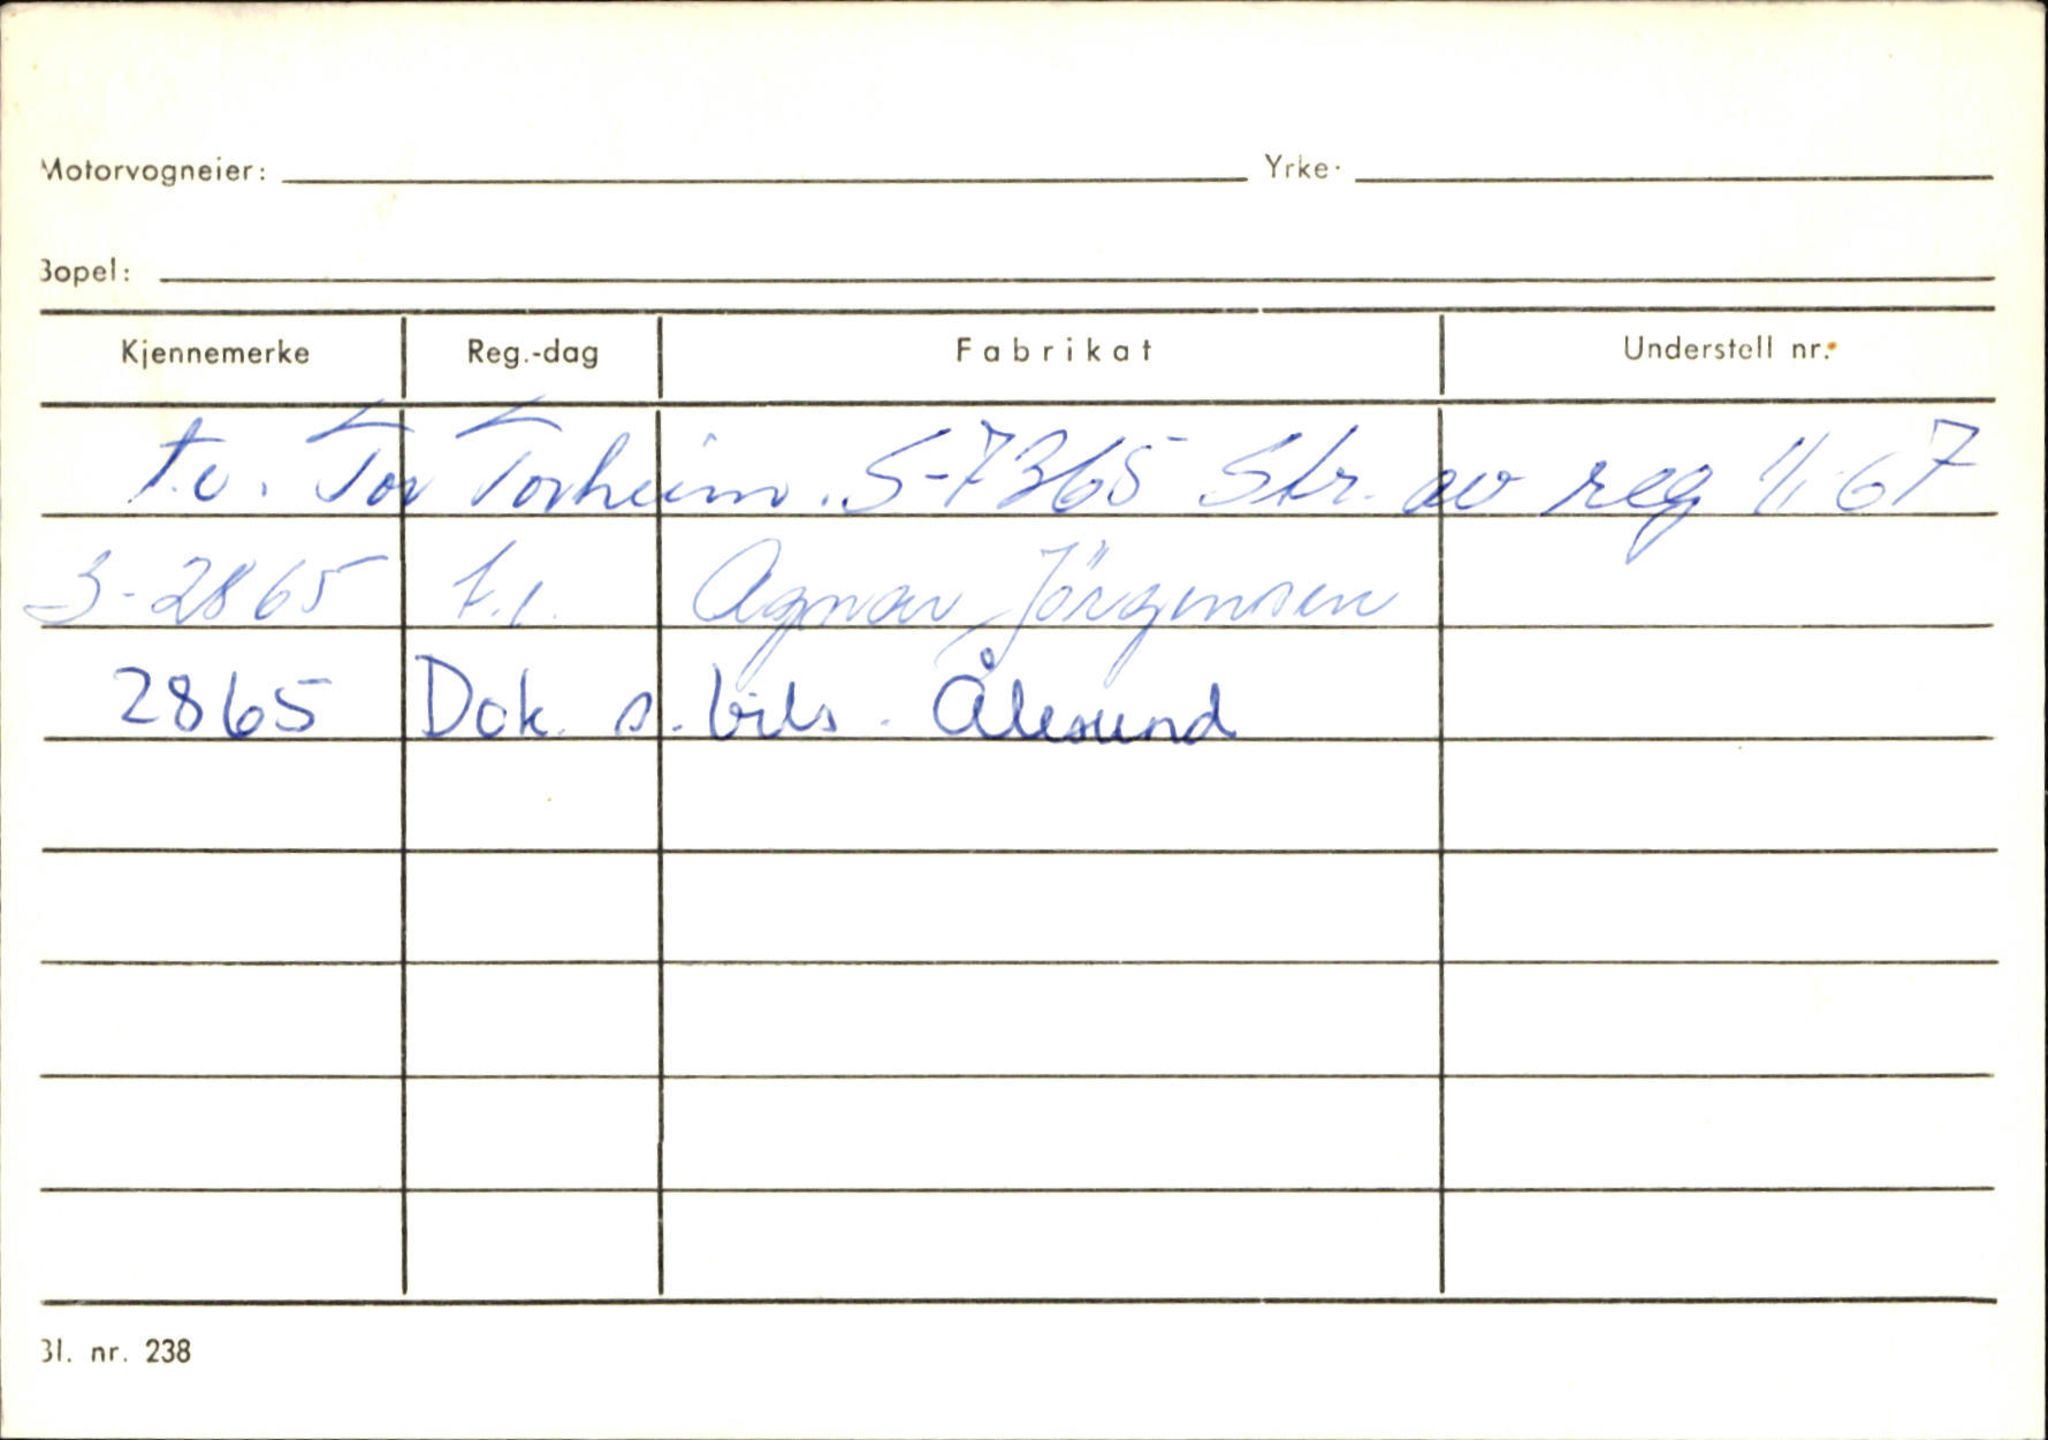 Motorvogneier: Yrke:
Bopel:
Kjennemerke Reg.-dag Fabrikat Understell nr.
t.e. Tor Torheim. S-7365 Str. av reg 1/1-67
S-2865 t.e. Agnar Jörgensen
2865 Dok. s. bils. Ålesund
Bl. nr. 238